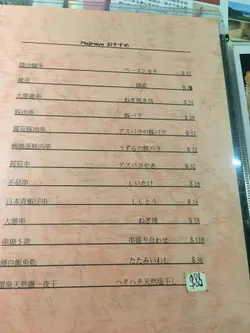 Mujinaya おすすめ
煙肉蠔串 ベーコンカキ $32
雞皮 鶏皮 $28
大蔥雞串 ねぎ焼き鳥 $24
豚肉串 豚バラ $28
露筍豚肉串 アスパラの豚バラ
鵪鶉蛋豚肉串 うずらの豚バラ
露筍串 アスパラやき
冬菇串 しいたけ $18
日本青椒仔串 ししとう $18
大蔥串 ねぎ焼 $18
串燒5款 串盛り合わせ $118
燒白飯魚乾 たたみいわし $38
天然鹽一夜干 ハタハタ天然塩干し $88